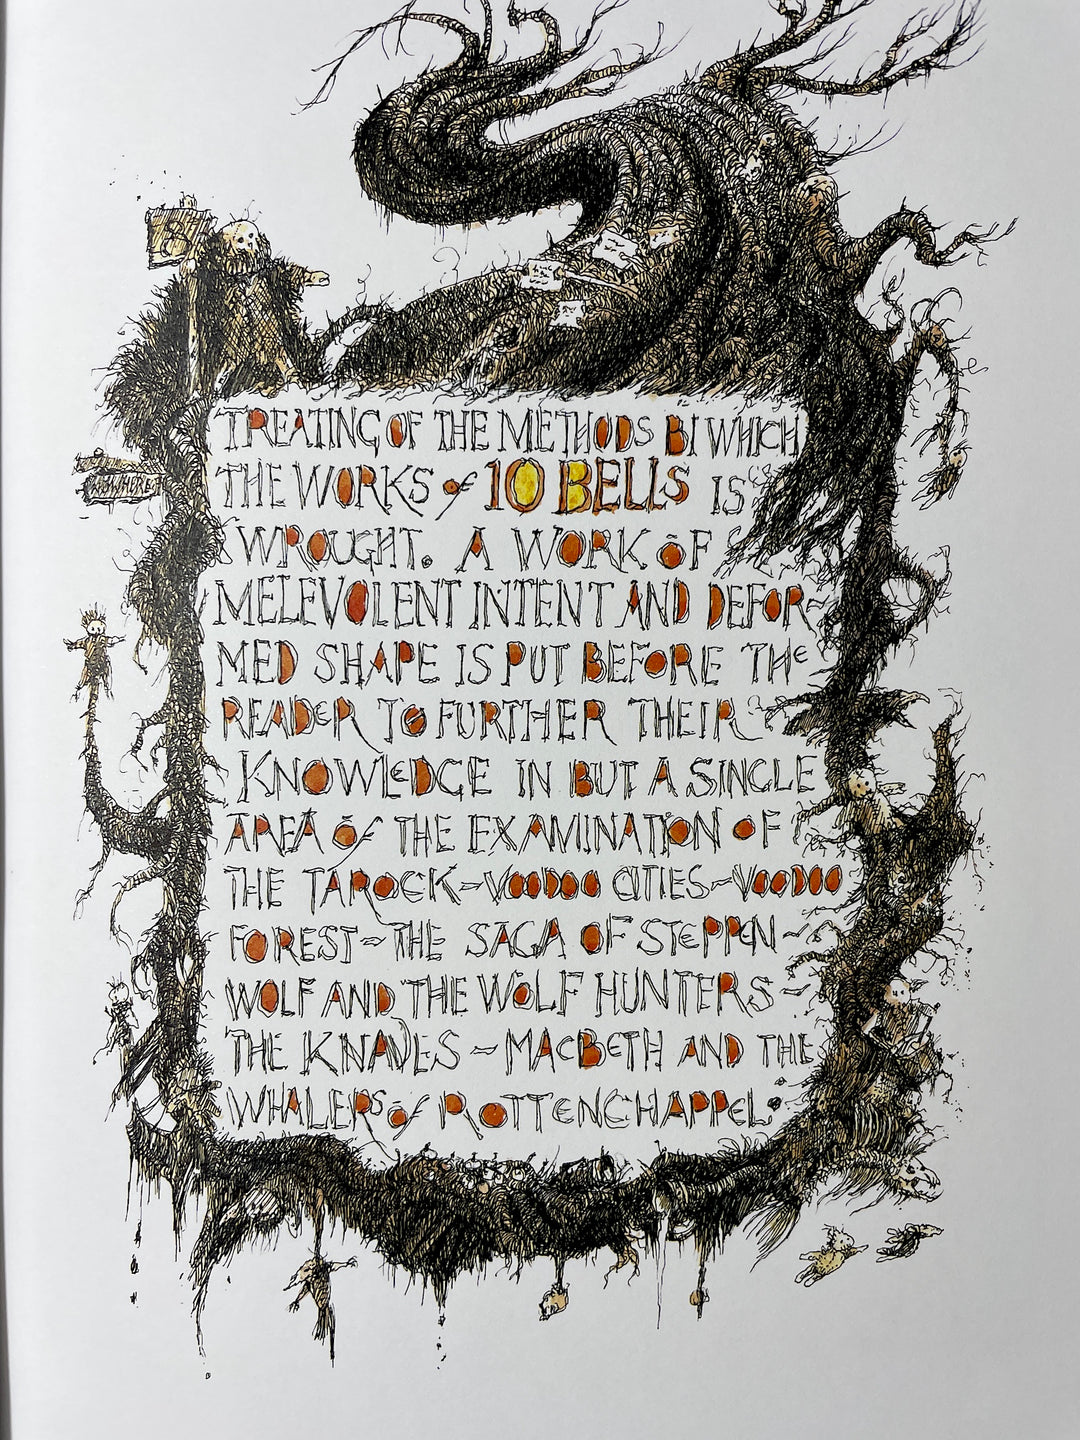 B
TREATING OF THE METHODS BI WHICH
THE WORKS of 10 BELLS IS
WROUGHT. A WORK OF
MELEVOLENT INTENT AND DEFOR-
MED SHAPE IS PUT BEFORE THE
READER TO FURTHER THEIR
KNOWLEDGE IN BUT A SINGLE
AREA of THE EXAMINATION OF
THE TAROCK ~ VOODOO CITIES ~ VOODOO
FOREST ~ THE SAGA OF STEPPEN ~
WOLF AND THE WOLF HUNTERS ~
THE KNAVES ~ MACBETH AND THE
WHALERS of ROTTENCHAPPEL.